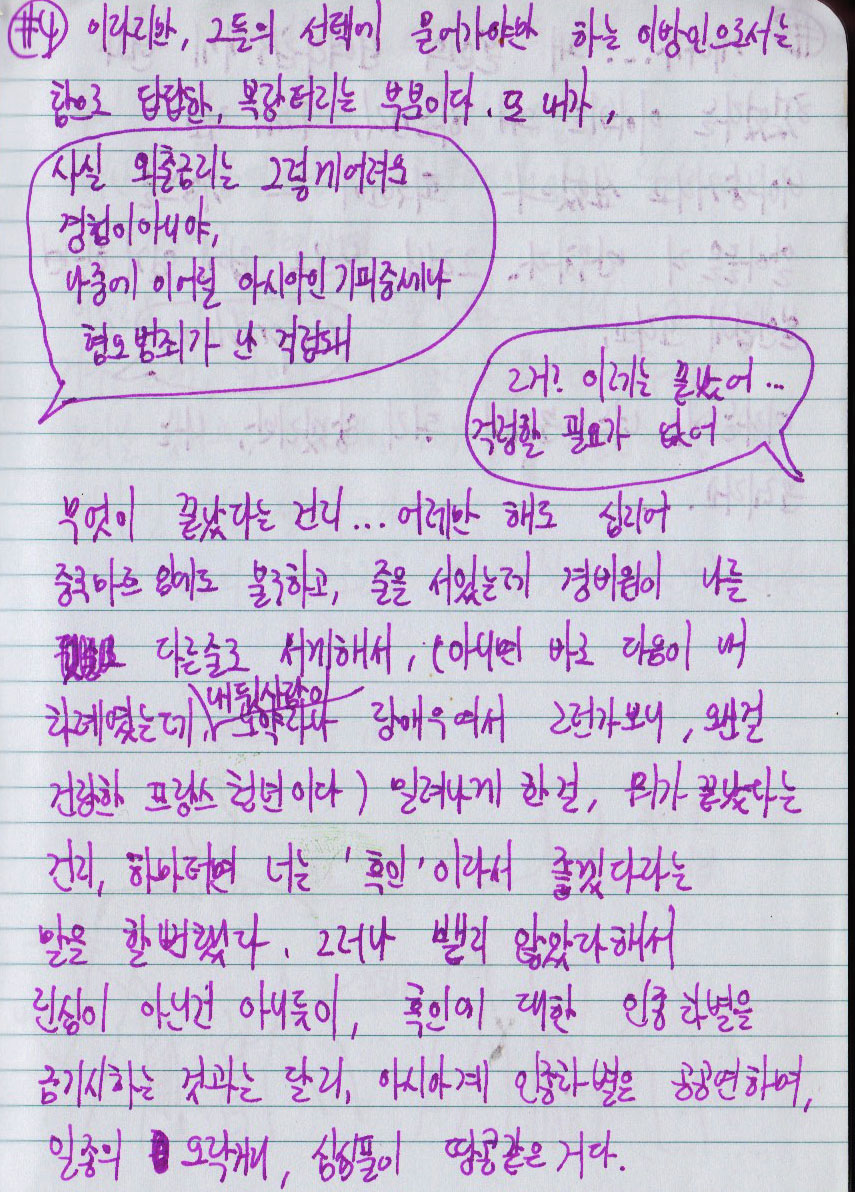 #4 이라지만, 그들의 선택에 묻어가야만 하는 이방인으로서는
참으로 답답한, 복장터리는 부분이다. 또 내가,
사실 외출금지는 그렇게어려운
경험이아니야,
나중에 이어질 아시아인 기피증세나
혐오범죄가 난 걱정돼
그거? 이제는 끝났어...
걱정할 필요가 없어
무엇이 끝났다는 건지... 어제만 해도 심지어
중국마트 임에도 불구하고, 줄을 서있는데 경비원이 나를
다른줄로 서게해서, (아니면 바로 다음이 내
차례였는데, 내 뒷사람이
노약자나 장애우여서 그런가보니, 왠걸
건장한 프랑스 청년이다) 밀려나게 한 걸, 뭐가 끝났다는
건지, 하마터면 너는 '흑인'이라서 좋겠다라는
말을 할뻔했다. 그러나 빨리 않았다해서
진심이 아닌건 아니듯이, 흑인에 대한 인종차별을
금기시하는 것과는 달리, 아시아계 인종차별은 공공연하며,
일종의 오락거리, 심심풀이 땅콩같은 거다.